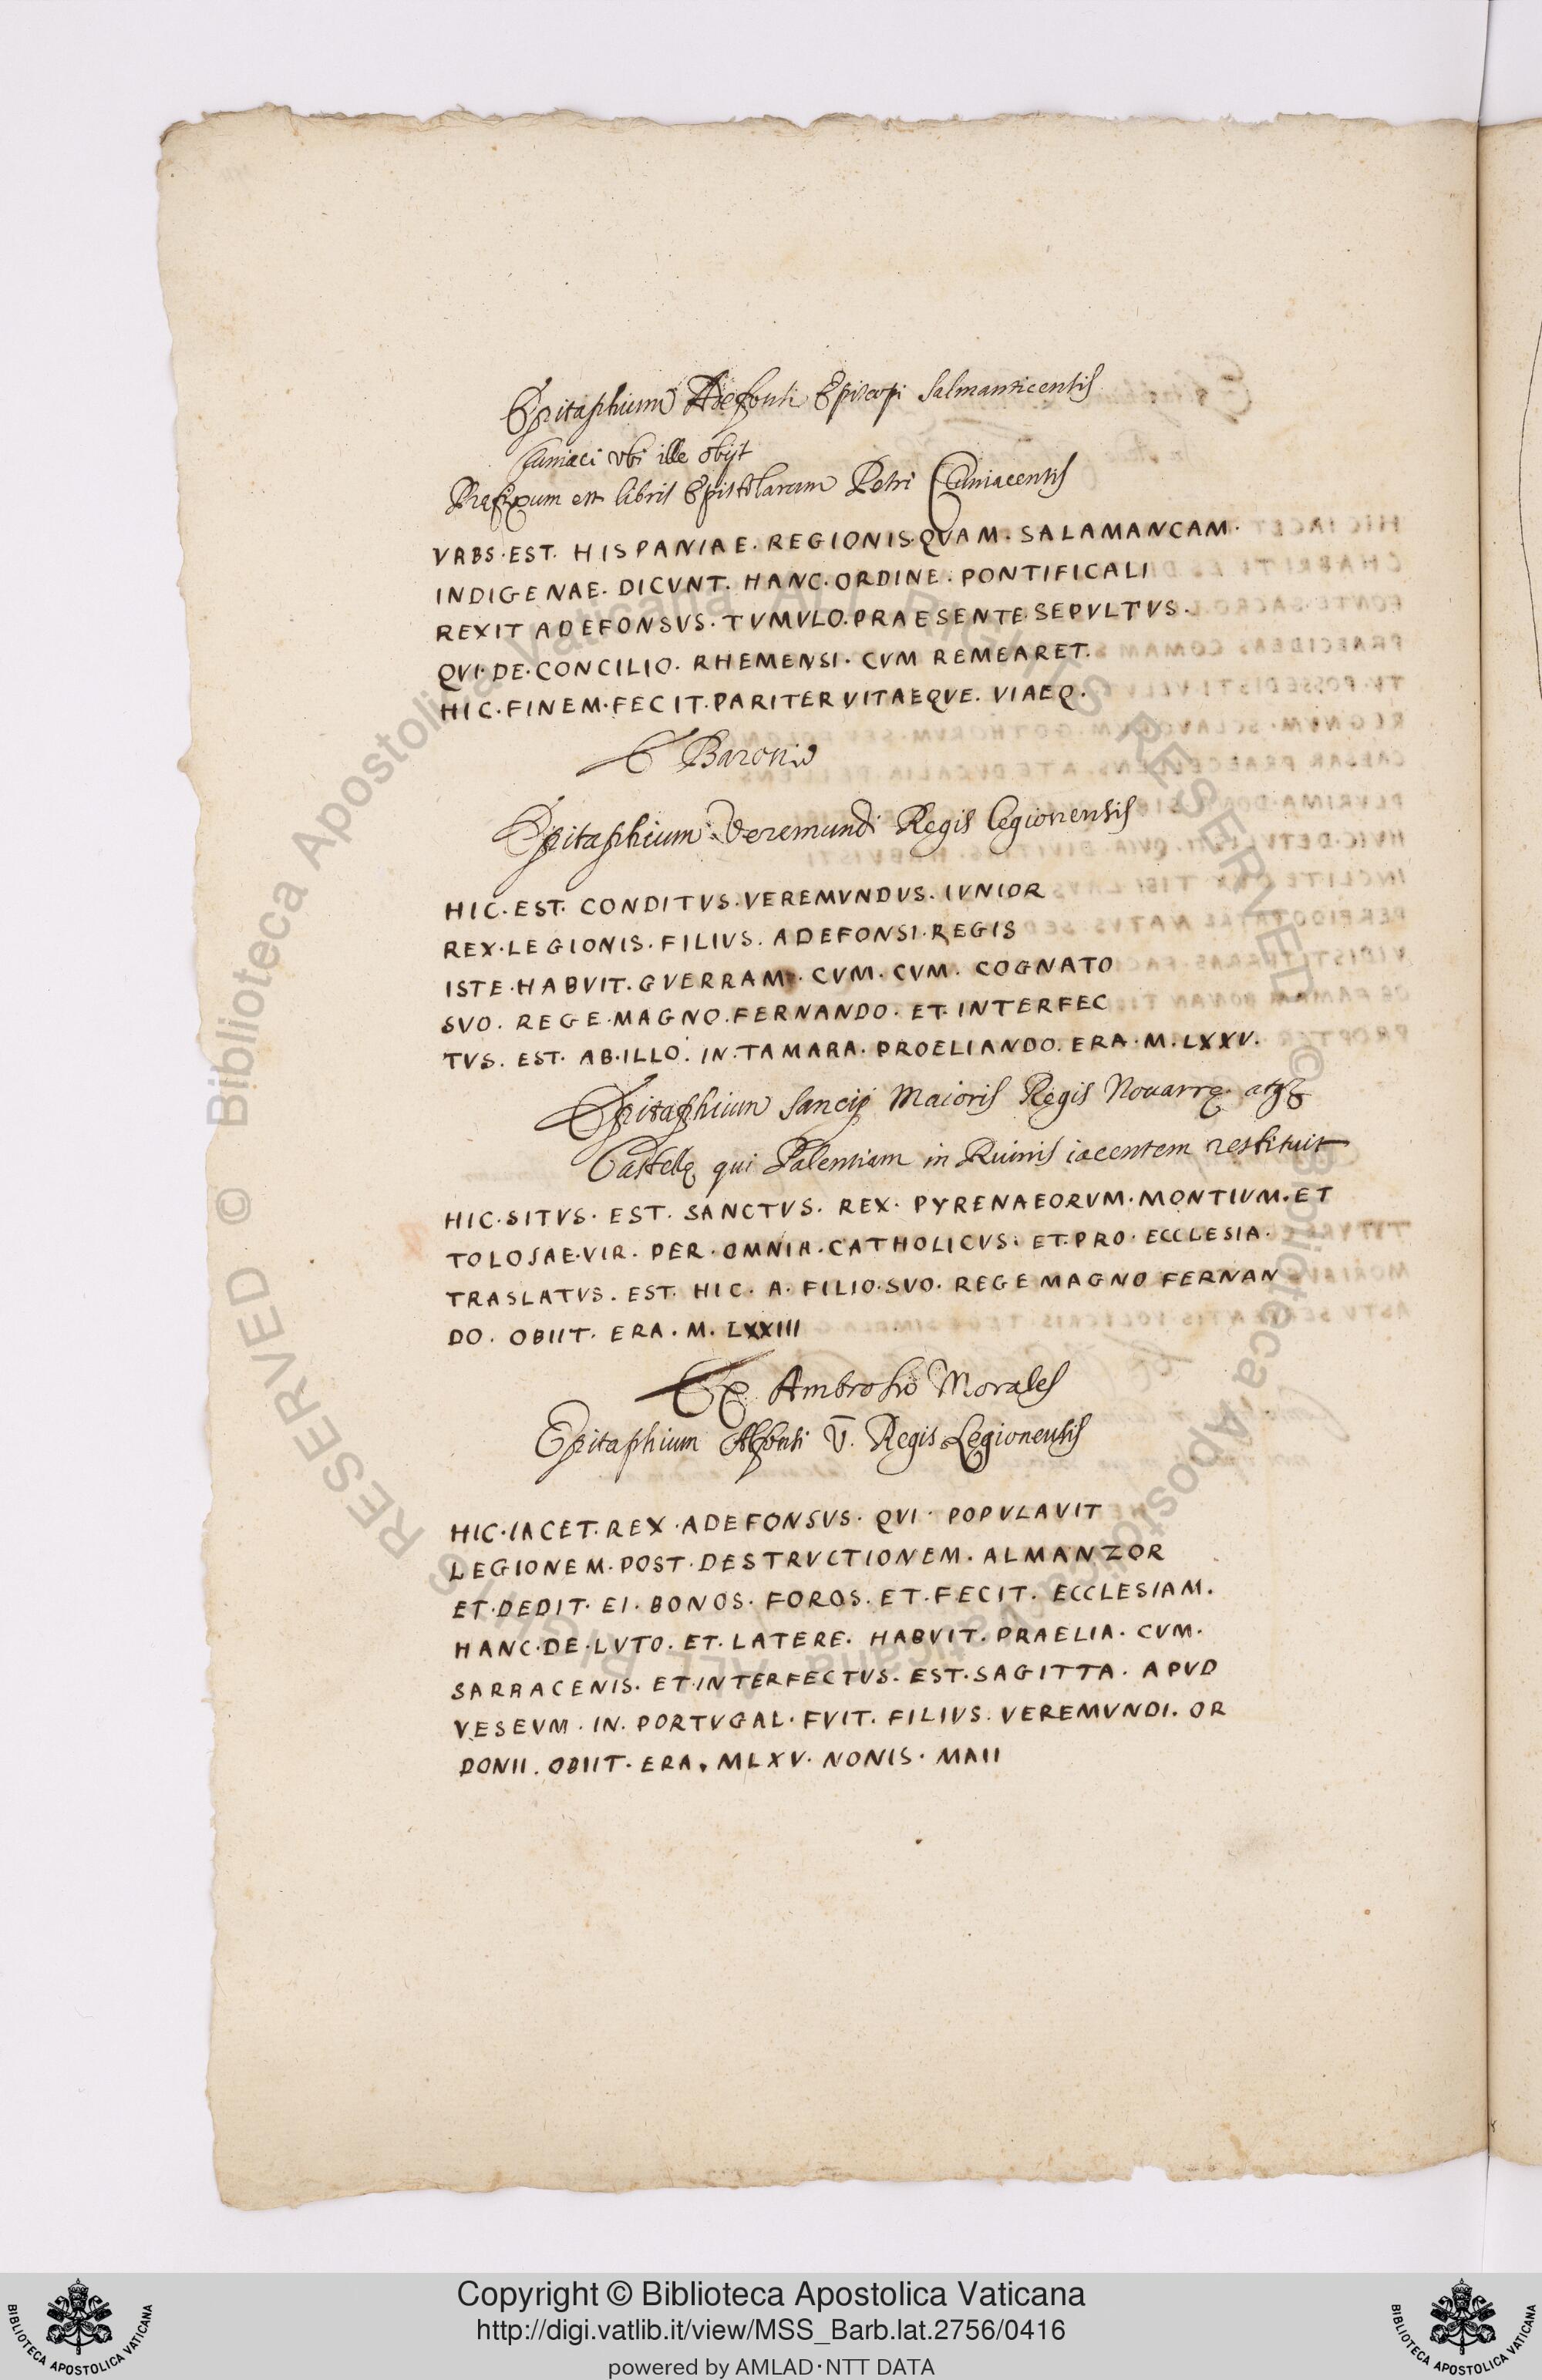 Epitaphium Adefonsi Episcopi Salmanticensis
Cluniaci vbi ille obijt
Praefixum est libris Epistolarum Petri Cluniacensis
VRBS·EST. HISPANIAE. REGIONIS·QVAM. SALAMANCAM.
INDIGENAE. DICVNT. HANC. ORDINE. PONTIFICALI
REXIT ADEFONSVS. TVMVLO. PRAESENTE SEPVLTVS.
QVI·DE·CONCILIO. RHEMENSI. CVM REMEARET.
HIC. FINEM·FECIT. PARITER VITAEQVE. VIAEQ.
E Baronio
Epitaphium Veremundi Regis Legionensis
HIC. EST. CONDITVS. VEREMVNDVS. IVNIOR
REX·LEGIONIS. FILIVS. ADEFONSI·REGIS
ISTE·HABVIT. GVERRAM. CVM. CVM. COGNATO
SVO. REGE·MAGNO. FERNANDO. ET. INTERFEC
TVS. EST. AB·ILLO. IN·TAMARA. PROELIANDO. ERA·M. LXXV.
Epitaphium Sancij Maioris Regis Nouarrę atq;
Castellę qui Palentiam in Ruinis iacentem restituit
HIC·SITVS. EST. SANCTVS. REX. PYRENAEORVM·MONTIVM. ET
TOLOSAE·VIR. PER·OMNIA. CATHOLICVS. ET·PRO·ECCLESIA.
TRASLATVS. EST. HIC. A. FILIO·SVO. REGE MAGNO FERNAN
DO. OBIIT. ERA. M. LXXIII
Ex Ambrosio Morales
Epitaphium Alfonsi V. Regis Legionensis
HIC·IACET. REX·ADEFONSVS. QVI· POPVLAVIT
LEGIONEM. POST·DESTRVCTIONEM. ALMANZOR
ET·DEDIT. EI. BONOS. FOROS. ET. FECIT. ECCLESIAM.
HANC·DE·LVTO. ET. LATERE. HABVIT. PRAELIA. CVM.
SARRACENIS. ET·INTERFECTVS. EST·SAGITTA. APVD
VESEVM. IN. PORTVGAL. FVIT. FILIVS. VEREMVNDI. OR
DONII. OBIIT. ERA. MLXV. NONIS. MAII
Copyright © Biblioteca Apostolica Vaticana
http://digi.vatlib.it/view/MSS_Barb.lat.2756/0416
powered by AMLAD·NTT DATA